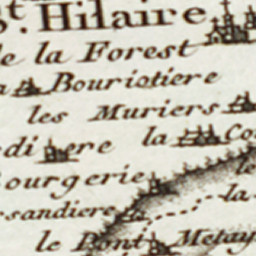 St. Hilaire
de la Forest
Bouriotiere
les Muriers
la Cou
ourgerie
le
la
sandiere
le Pont
Metay